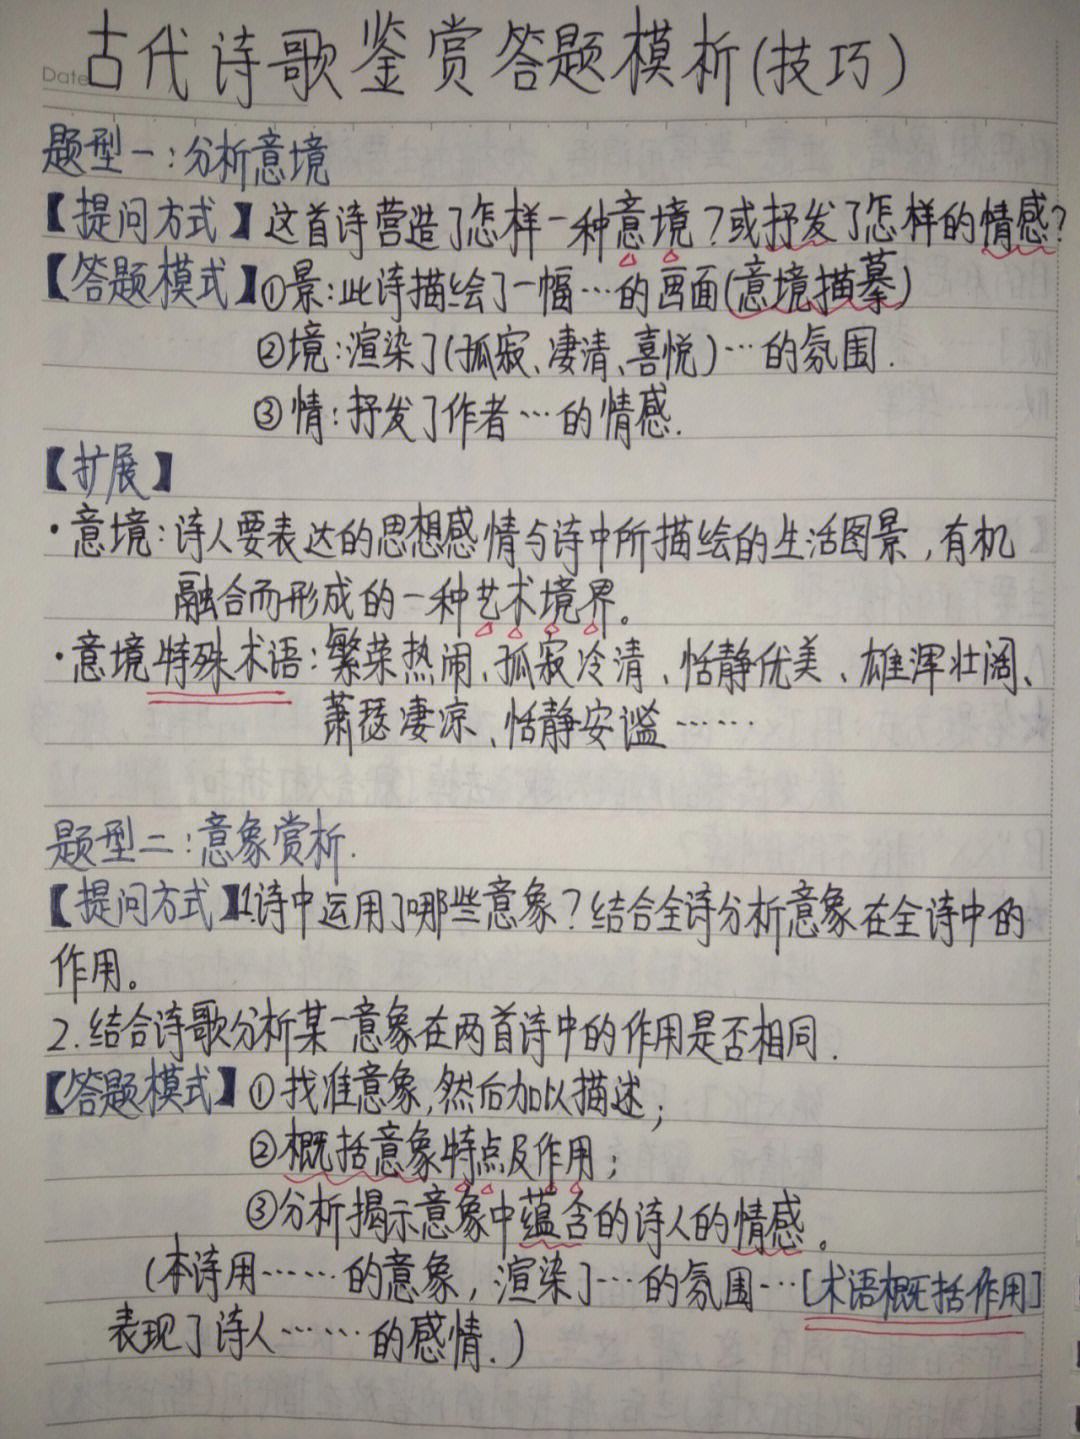 Date
古代诗歌鉴赏答题模析(技巧)
题型一:分析意境
【提问方式】这首诗营造了怎样一种意境?或抒发了怎样的情感?
【答题模式】①景:此诗描绘了一幅…的画面(意境描摹)
②境:渲染了(孤寂、凄清、喜悦)…的氛围.
③情:抒发了作者…的情感.
【扩展】
·意境:诗人要表达的思想感情与诗中所描绘的生活图景,有机
融合而形成的一种艺术境界。
·意境特殊术语:繁荣热闹、孤寂冷清、恬静优美、雄浑壮阔、
萧瑟凄凉、恬静安谧……
题型二:意象赏析.
【提问方式】1.诗中运用了哪些意象?结合全诗分析意象在全诗中的
作用。
2.结合诗歌分析某一意象在两首诗中的作用是否相同.
【答题模式】①找准意象,然后加以描述;
②概括意象特点及作用;
③分析揭示意象中蕴含的诗人的情感。
(本诗用……的意象,渲染了…的氛围…[术语概括作用]
表现了诗人……的感情.)